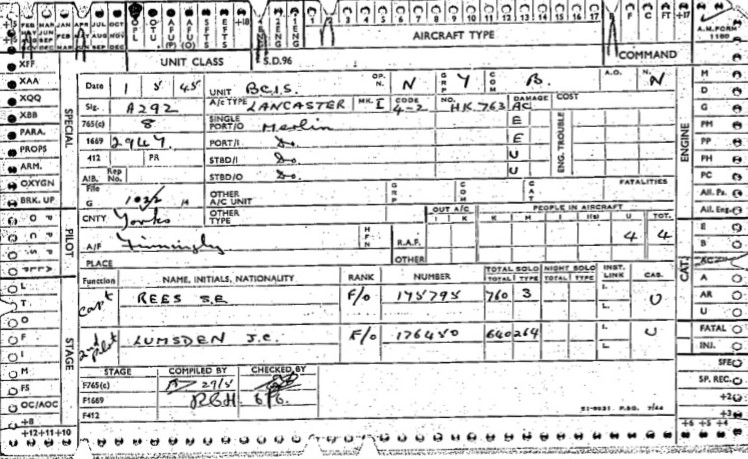 FEB MAR JAN APR JUL OCT OPL OTU AFU (P) AFU (O) SFTS EFTS +18 4 ENG 2 ENG 1 ENG 1 2 3 4 5 6 7 8 9 10 11 12 13 14 15 16 17 F C FT +17 A.M. FORM 1180
UNIT CLASS AIRCRAFT TYPE COMMAND
S.D.96
XFF XAA XQQ XBB PARA. PROPS ARM. OXYGN BRK. UP
SPECIAL
PILOT
STAGE
Date 1 5 45 UNIT B.C.I.S. OP. N. N GRP Y COM B. A.O. N. N
Sig. A292 A/c TYPE LANCASTER MK. I CODE 4-2 NO. HK.763 DAMAGE AC COST
765(c) 8 SINGLE PORT/O Merlin E ENG. TROUBLE
1669 2947 PORT/I Do. E
412 PR STBD/I Do. U
AIB. Rep No. STBD/O Do. U
File G 1022/ H OTHER A/C UNIT GRP COM CAT FATALITIES
CNTY Yorks OTHER TYPE OUT A/C I K PEOPLE IN AIRCRAFT K M I U TOT.
A/F Finningley HFN R.A.F. 4 4
PLACE OTHER
Function NAME, INITIALS, NATIONALITY RANK NUMBER TOTAL SOLO TOTAL TYPE NIGHT SOLO TOTAL TYPE INST. LINK CAS.
Capt REES S.E. F/O 175795 760 3 L U
2nd Pilot LUMSDEN J.C. F/O 176450 640 264 L U
STAGE COMPILED BY CHECKED BY
F765(c) 29/5
F1669 R.B.H. 6/6.
F412
51-9031. P.SG. 7/44
L T O F I M FS OC/AOC +8 +12 +11 +10
ENGINE
M D G PM PP PH PC All. Pa. All. Eng.
CAT.
E B AC A AR U FATAL INJ. SFE SP. REC. +2 +3 +6 +5 +4